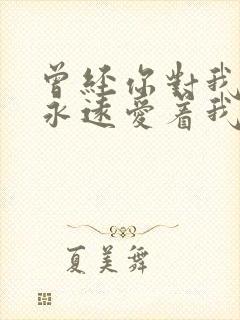 曾經你對我
永遠愛着我
夏美舞